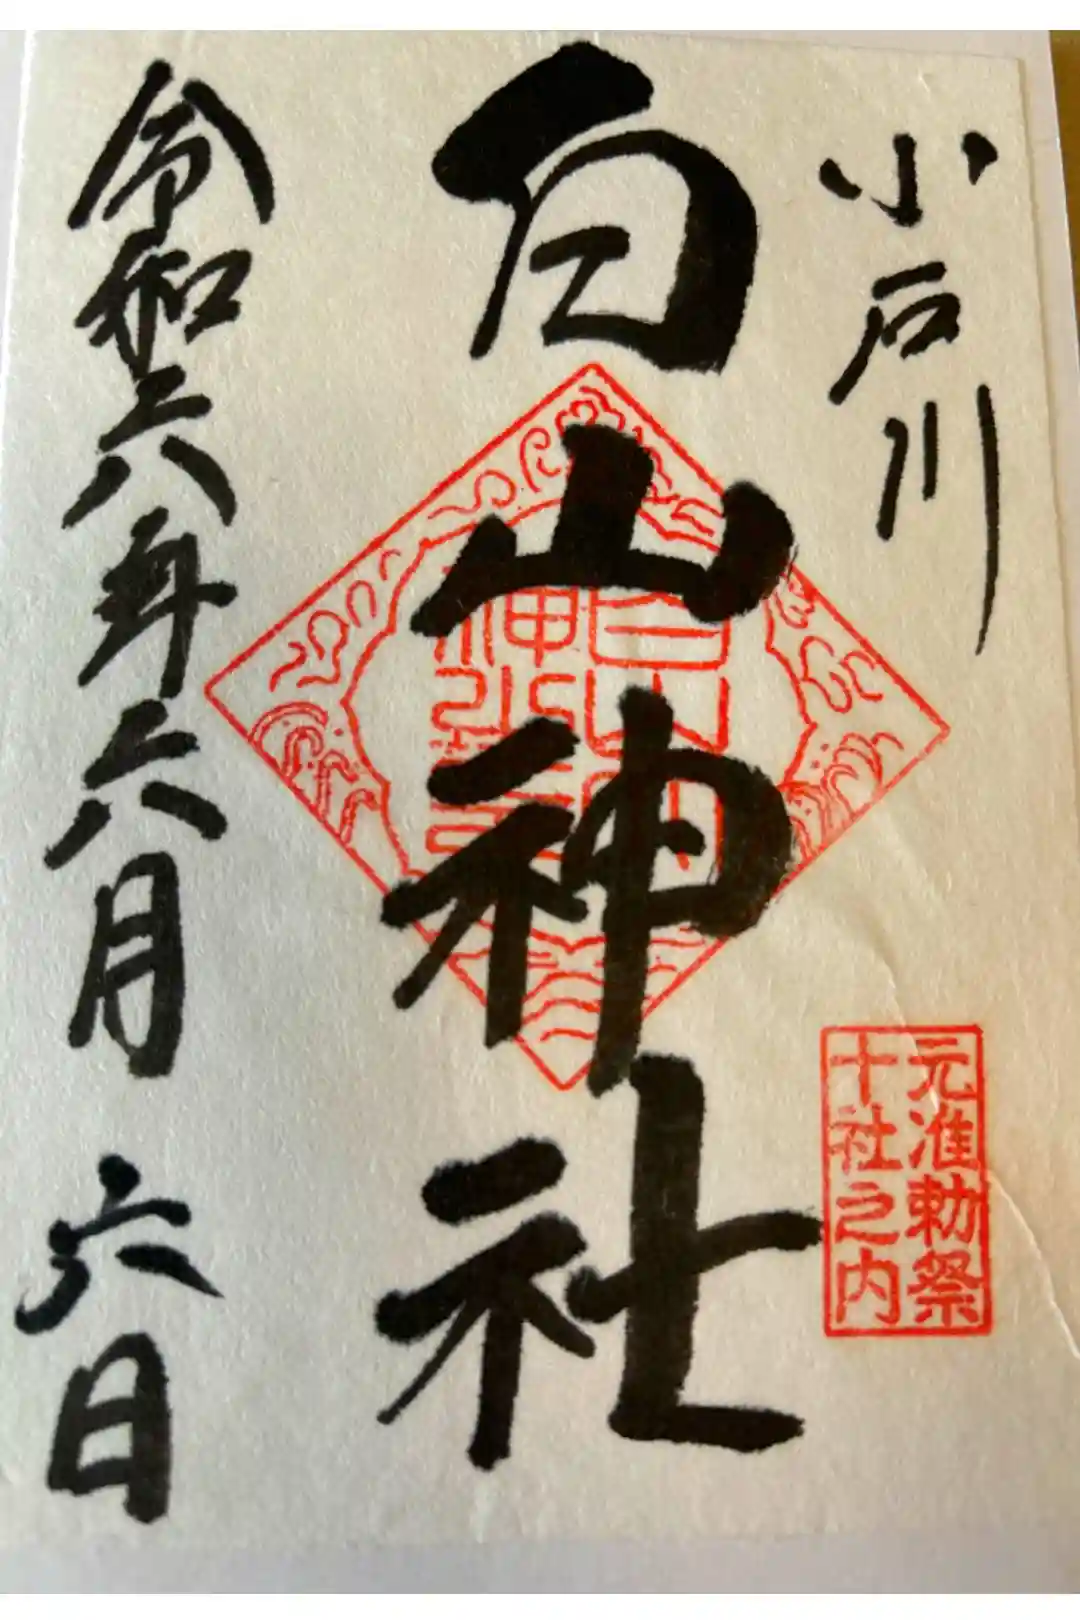 小石川
元准勅祭
十社之内
白山神社
令和六年六月六日